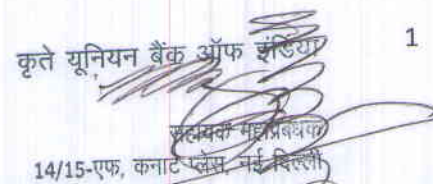 कृते यूनियन बैंक ऑफ इंडिया 1
सहायक महाप्रबंधक
14/15-एफ, कनाट प्लेस, नई दिल्ली